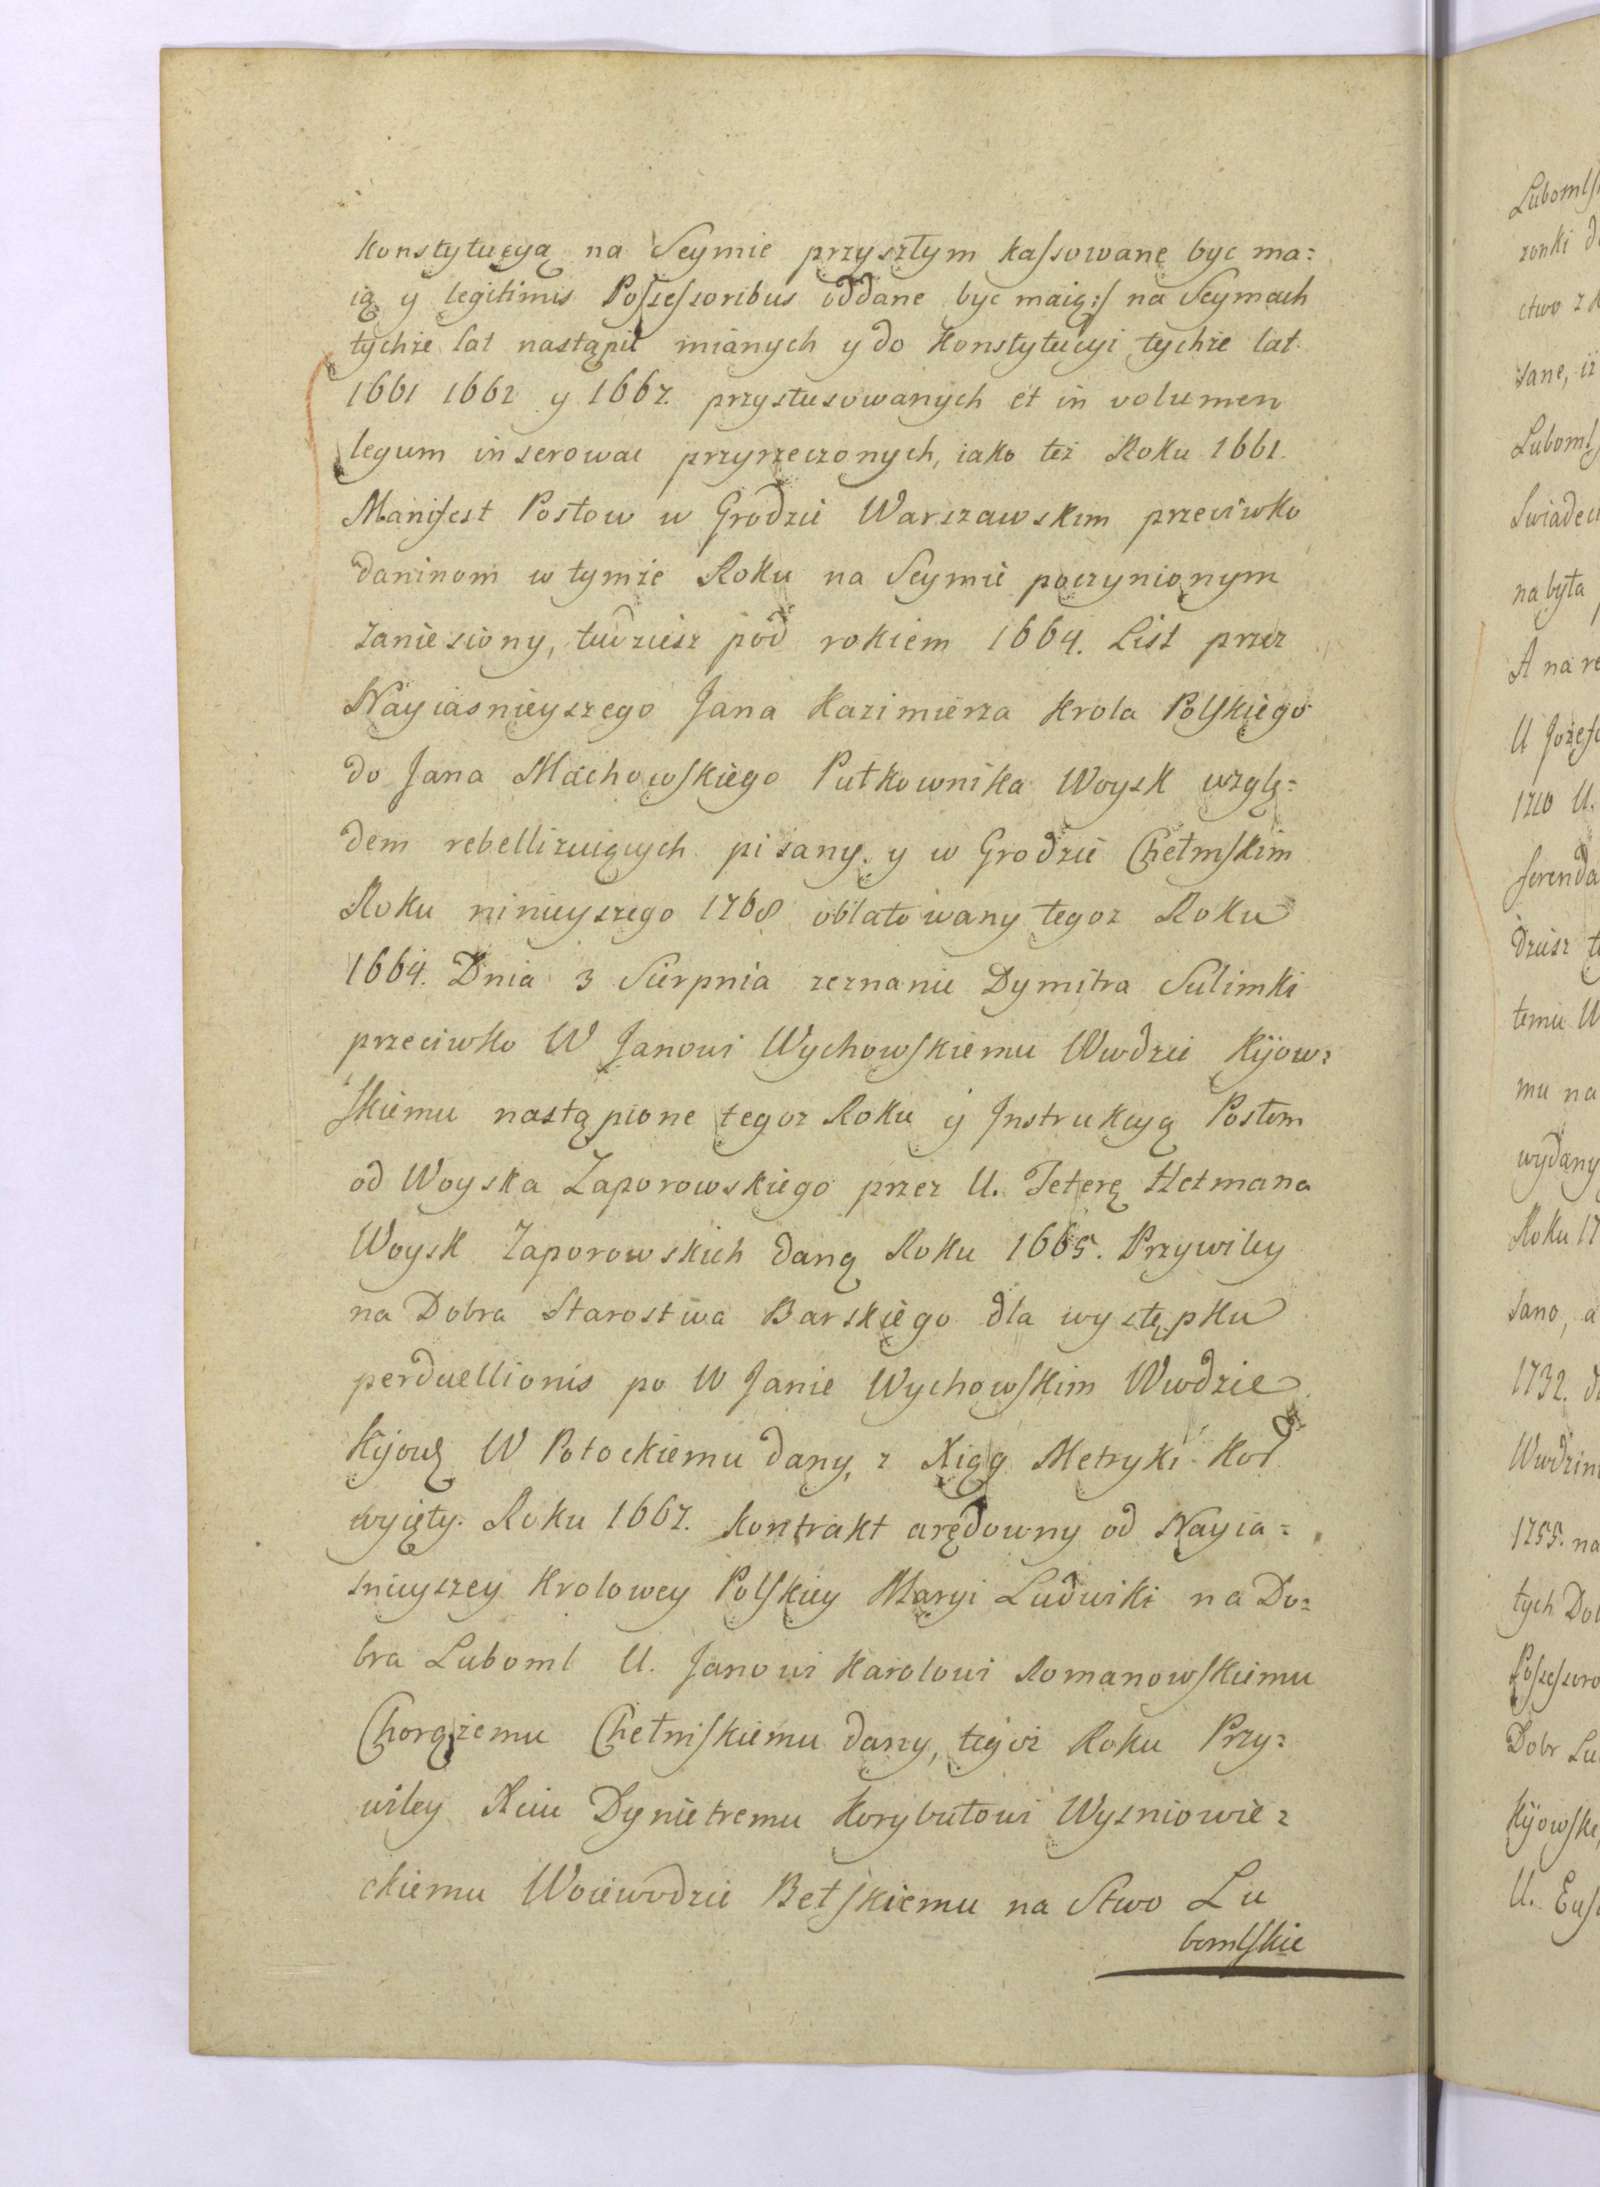 konstytucyą na Seymie przyszłym kassowane byc ma=
ią y legitimis Possessoribus oddane byc maią:/ na Seymach
tychże lat nastąpić mianych y do Konstytucyi tychże lat
1661 1662 y 1667. przystusowanych et in volumen
legum inserowac przyrzeczonych, iako też Roku 1661.
Manifest Posłow w Grodzie Warszawskim przeciwko
daninom w tymże Roku na Seymie poczynionym
zaniesiony, tudziesz pod rokiem 1664. List przez
Nayiasnieyszego Jana Kazimierza Krola Polskiego
do Jana Machowskiego Pułkownika Woysk wzglę=
dem rebellizuiących pisany y w Grodzie Chełmskim
Roku ninieyszego 1768 oblatowany tegoz Roku
1664. Dnia 3 Sierpnia zeznanie Dymitra Sulimki
przeciwko W Janowi Wychowskiemu Wwdzie Kijow=
skiemu nastąpione tegoz Roku y Instrukcyą Posłom
od Woyska Zaporowskiego przez U. Teterę Hetmana
Woysk Zaporowskich daną Roku 1665. Przywiley
na Dobra Starostwa Barskiego dla występku
perduellionis po W Janie Wychowskim Wwdzie
Kijows W Potockiemu dany, z Xiąg Metryki Kor
wyięty. Roku 1667. kontrakt arędowny od Nayia=
snieyszey Krolowey Polskiey Maryi Ludwiki na Do=
bra Luboml U. Janowi Karolowi Romanowskiemu
Chorążemu Chełmskiemu dany, tegoż Roku Przy=
wiley Xciu Dymetremu Korybutowi Wysniowie=
ckiemu Woiewodzie Bełskiemu na Stwo Lu
bomlskie
Lubomls
ronki
ctwo z
sane, iż
Luboml
Swiadec
nabyta
A na re
U Jozef
1710 U.
ferenda
Dziesz t
temu W
mu na
wydany
Roku 17
sano, a
1732. d
Wwdzin
1755. na
tych Dob
Possessoro
Dobr Lu
Kijowske
U. Eus